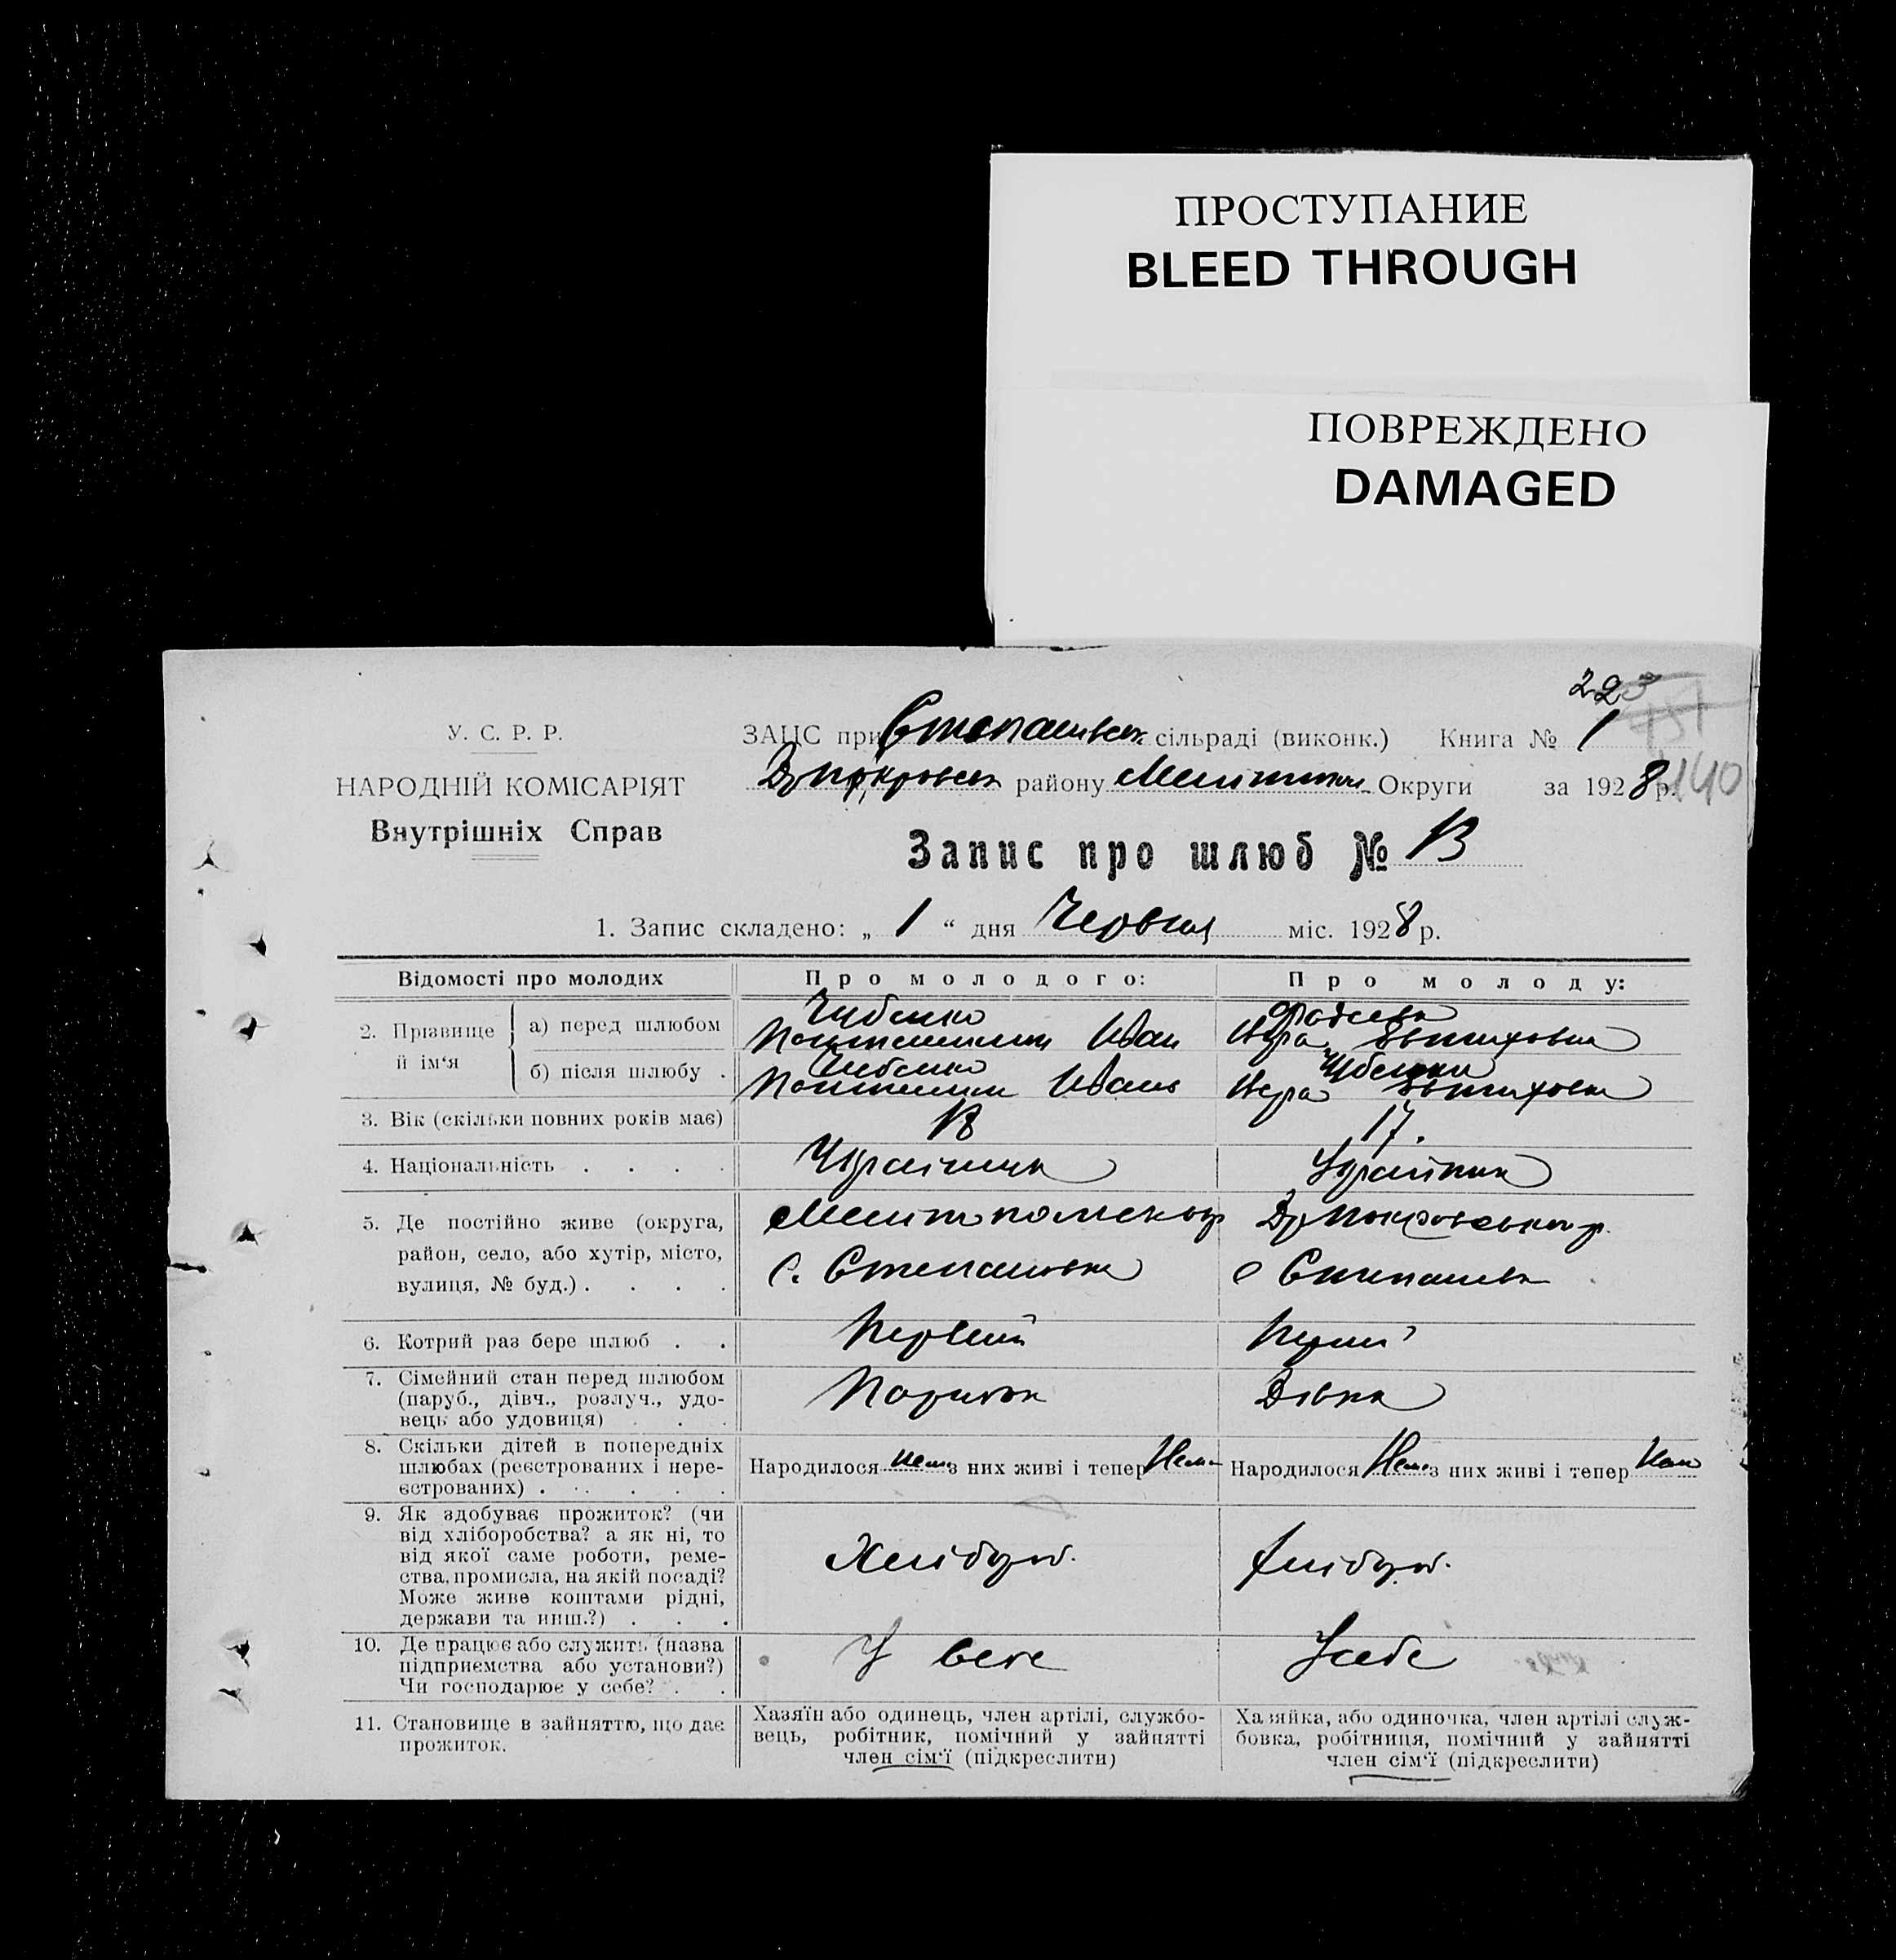 ПРОСТУПАНИЕ
BLEED THROUGH
ПОВРЕЖДЕНО
DAMAGED
223
У. С. Р. Р.
НАРОДНІЙ КОМІСАРІЯТ
Внутрішніх Справ
ЗАЦС при сільраді (виконк.) Книга № 1
району Округи за 1928 р. 140
Запис про шлюб №
1. Запис складено: „ 1 “ дня Червня міс. 1928 р.
Відомості про молодих
Про молодого:
Про молоду:
2. Прізвище й ім‘я
а) перед шлюбом
Чубенко
Іван
Вера
б) після шлюбу .
Чубенко
Вера
3. Вік (скільки повних років має)
18
17.
4. Національність . . . .
Українец
Українка
5. Де постійно живе (округа,
район, село, або хутір, місто,
вулиця, № буд.) . . . .
с. Степанівка
с Степанівка
6. Котрий раз бере шлюб . .
Первий
Перший
7. Сімейний стан перед шлюбом
(паруб., дівч., розлуч., удо-
вець або удовиця) . . .
Парубок
Дівка
8. Скільки дітей в попередніх
шлюбах (реєстрованих і нере-
єстрованих) . . . . .
Народилося нема з них живі і тепер Нема
Народилося Нема з них живі і тепер Нема
9. Як здобуває прожиток? (чи
від хліборобства? а як ні, то
від якої саме роботи, реме-
ства, промисла, на якій посаді?
Може живе коштами рідні,
держави та инш.?) . . .
Хлібороб.
Хлібороб.
10. Де працює або служить (назва
підприємства або установи?)
Чи господарює у себе? . .
У себе
У себе
11. Становище в зайняттю, що дає
прожиток.
Хазяїн або одинець, член артілі, службо-
вець, робітник, помічний у зайнятті
член сім‘ї (підкреслити)
Хазяйка, або одиночка, член артілі служ-
бовка, робітниця, помічний у зайнятті
член сім‘ї (підкреслити)